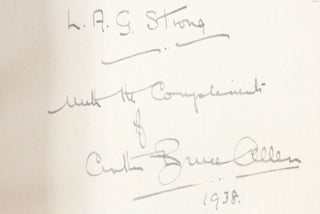 L. A. G. Strong
with the Compliments
of
Bruce Allen
1938.